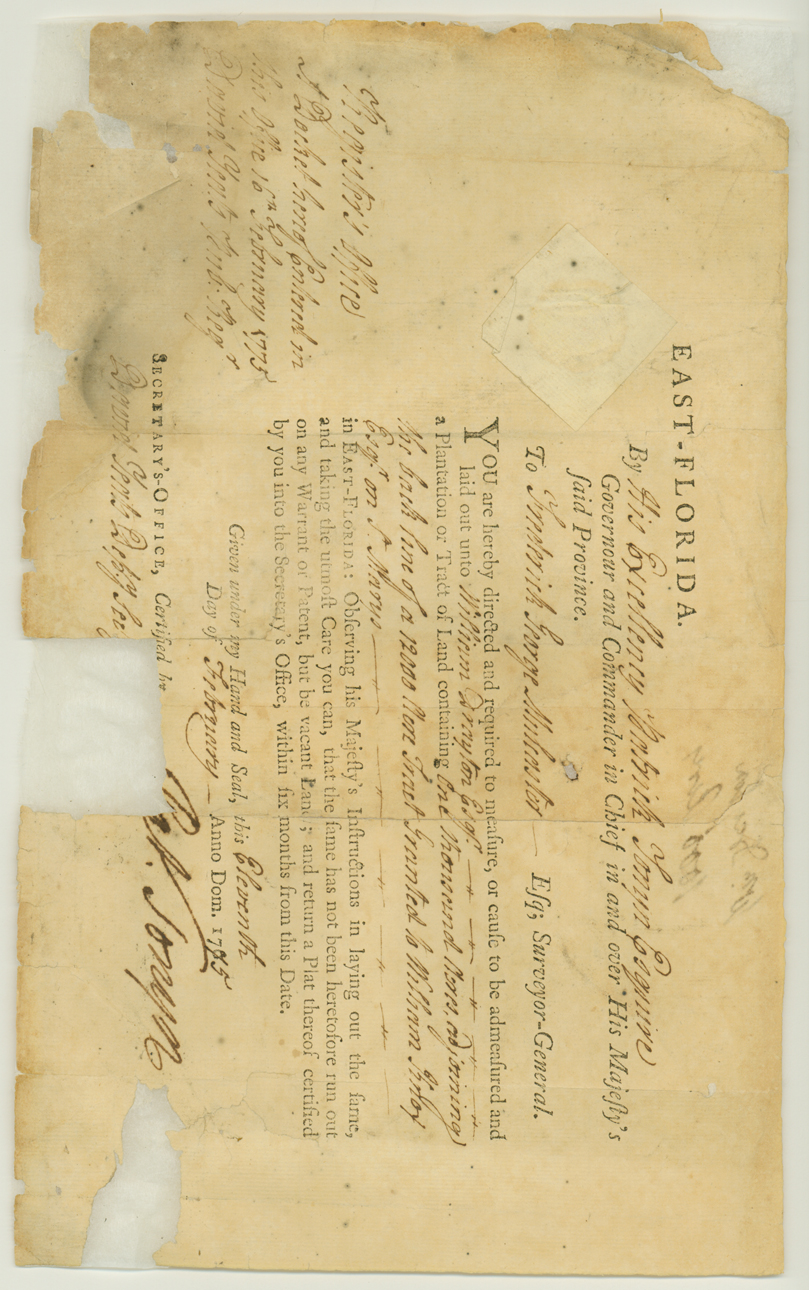 EAST-FLORIDA.
By His Excellency Patrick Tonyn Esquire
Governour and Commander in Chief in and over His Majeſty's
ſaid Province.
To Frederick George Mulcaster — Eſq; Surveyor-General.
YOU are hereby directed and required to meaſure, or cauſe to be admeaſured and
laid out unto William Drayton Esqr.
a Plantation or Tract of Land containing One thousand Acres, adjoining
the back line of a 12000 Acre Tract Granted to William
Esqr. on St. Marys
in EAST-FLORIDA: Obſerving his Majeſty's Inſtructions in laying out the ſame,
and taking the utmoſt Care you can, that the ſame has not been heretofore run out
on any Warrant or Patent, but be vacant Land; and return a Plat thereof certified
by you into the Secretary's Office, within ſix months from this Date.
Given under my Hand and Seal, this Eleventh
Day of February — Anno Dom. 1775
Pat. Tonyn
SECRETARY'S-OFFICE, Certified by
David Yeats Depy. Secy
Register's Office
A Docket being Entered in
this Office 16th February 1775
David Yeats Regr